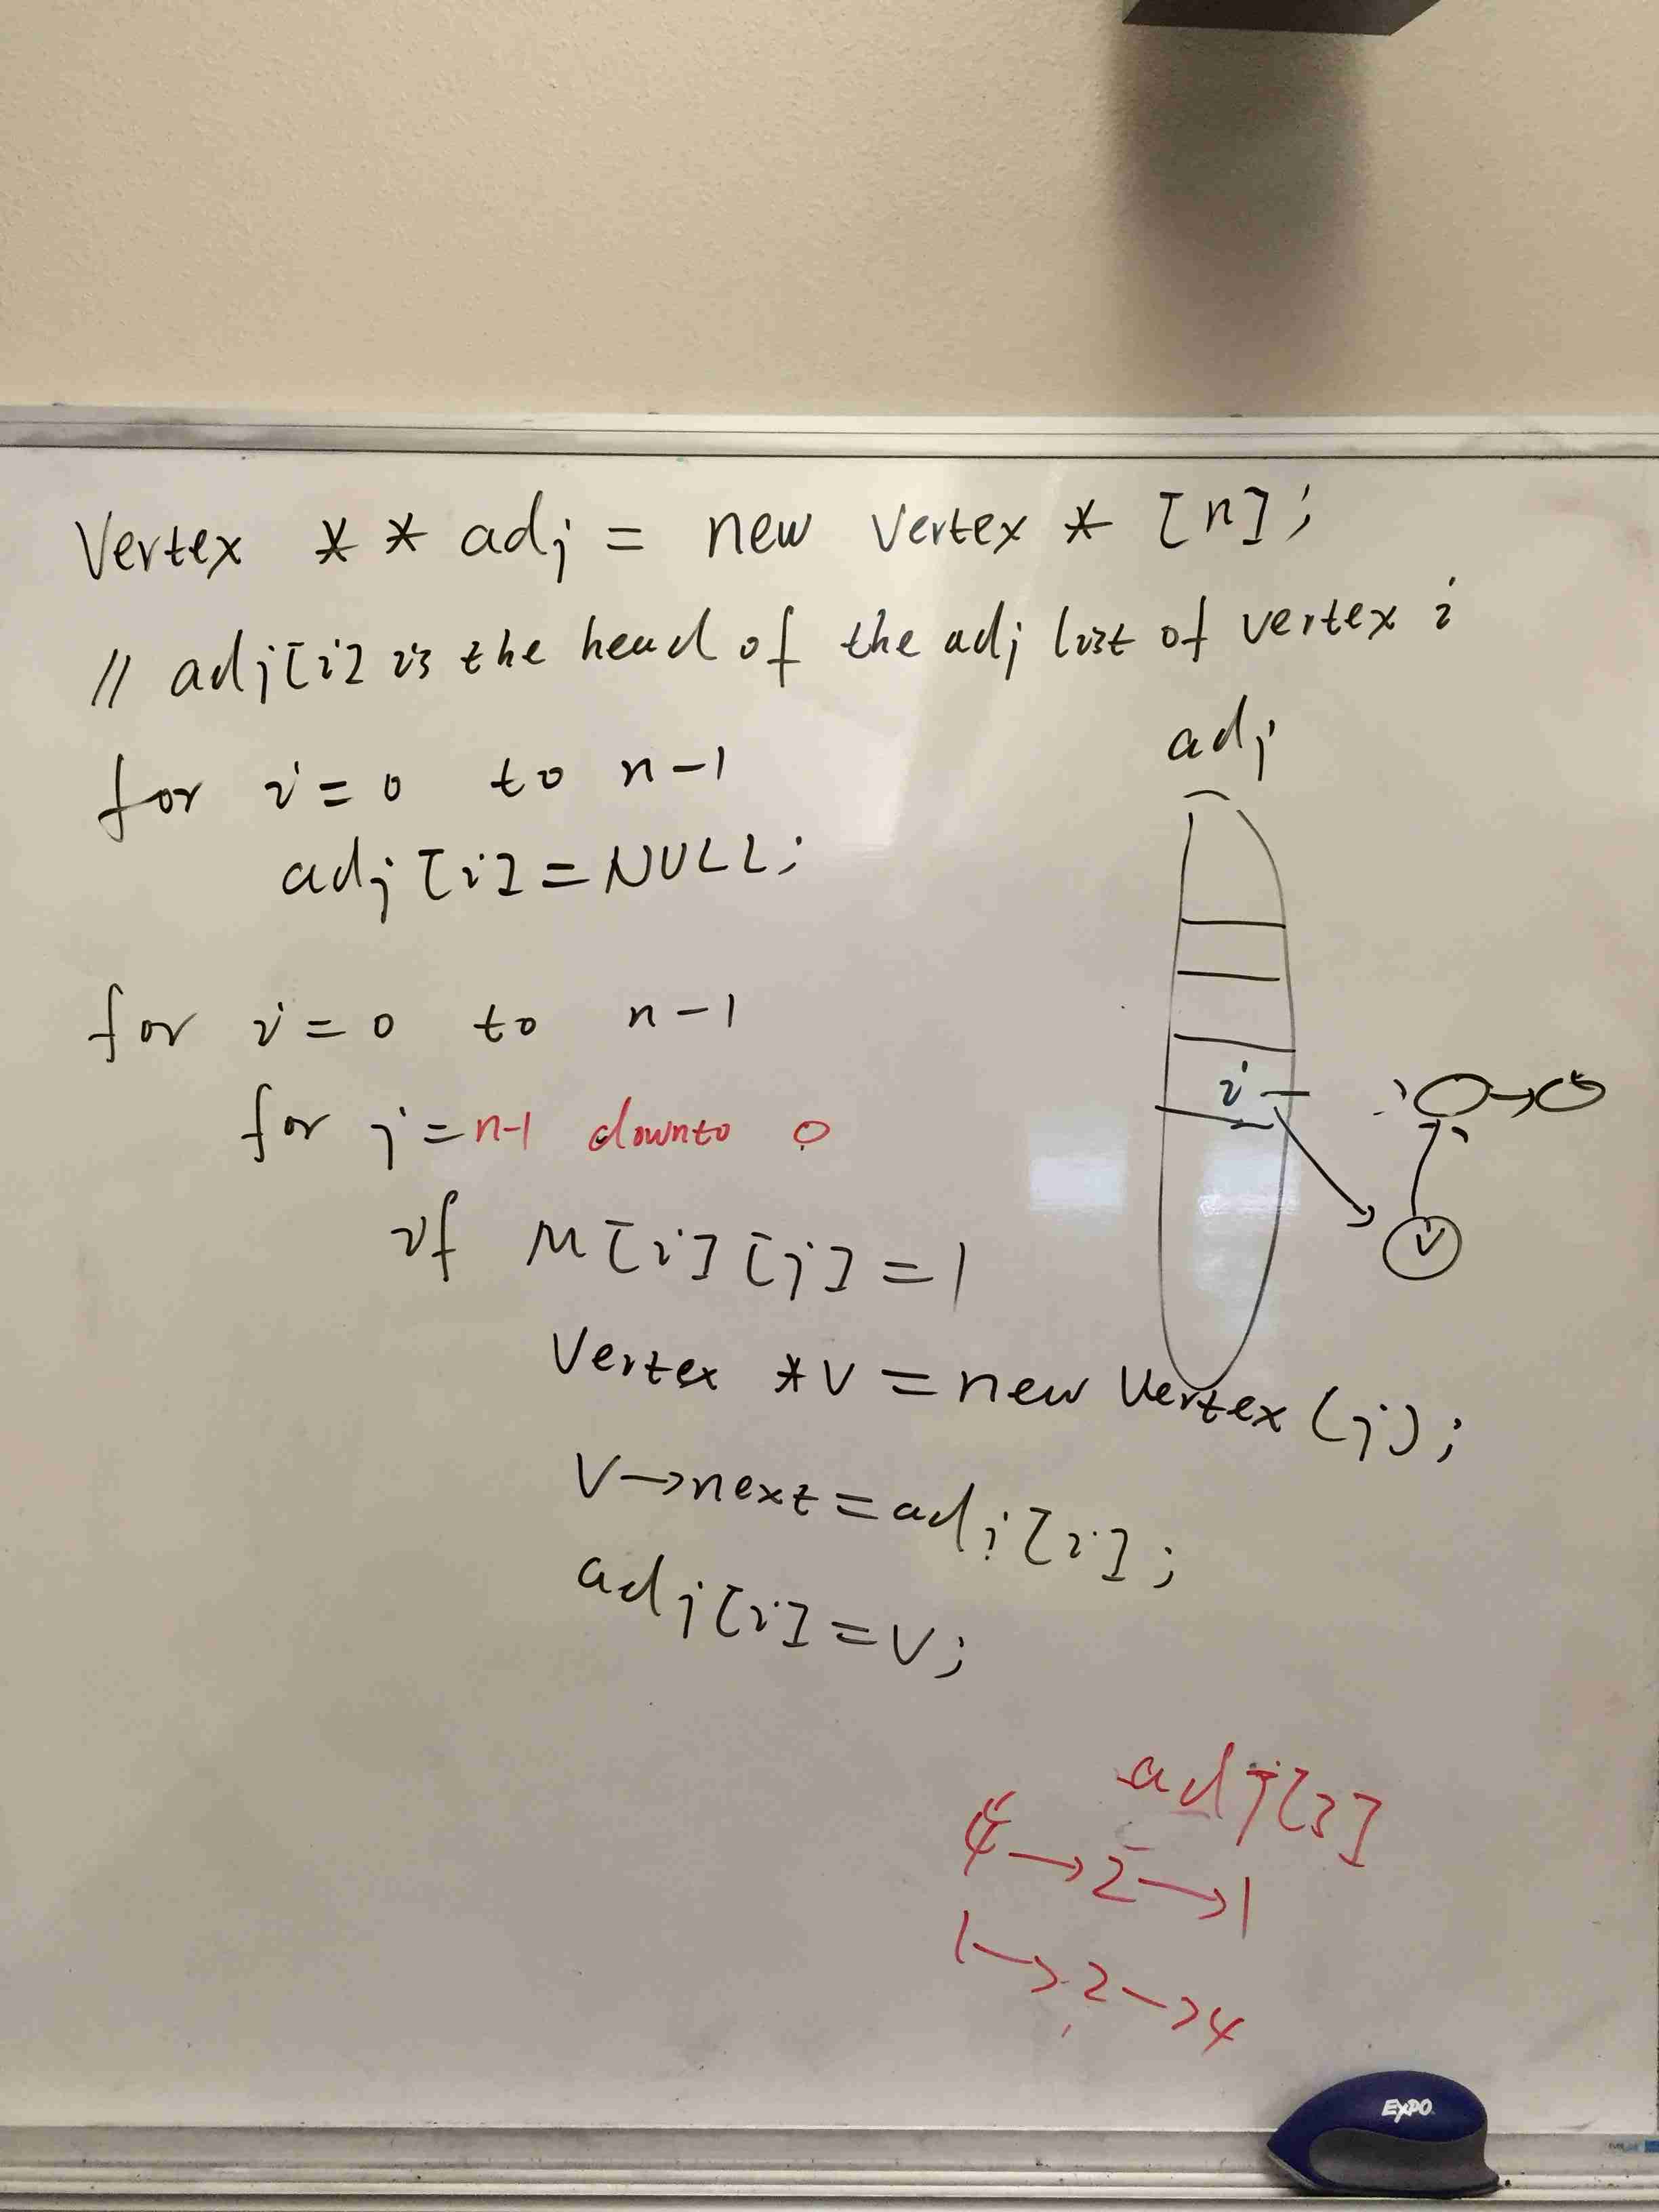 Vertex * * adj = new Vertex * [n];
// adj[i] is the head of the adj list of vertex i
adj
for i = 0 to n-1
adj[i] = NULL;
for i = 0 to n-1
for j = n-1 downto 0
i
if M[i][j] = 1
V
Vertex *V = new Vertex(j);
V→next = adj[i];
adj[i] = V;
adj[3]
4→2→1
1→2→4
EXPO